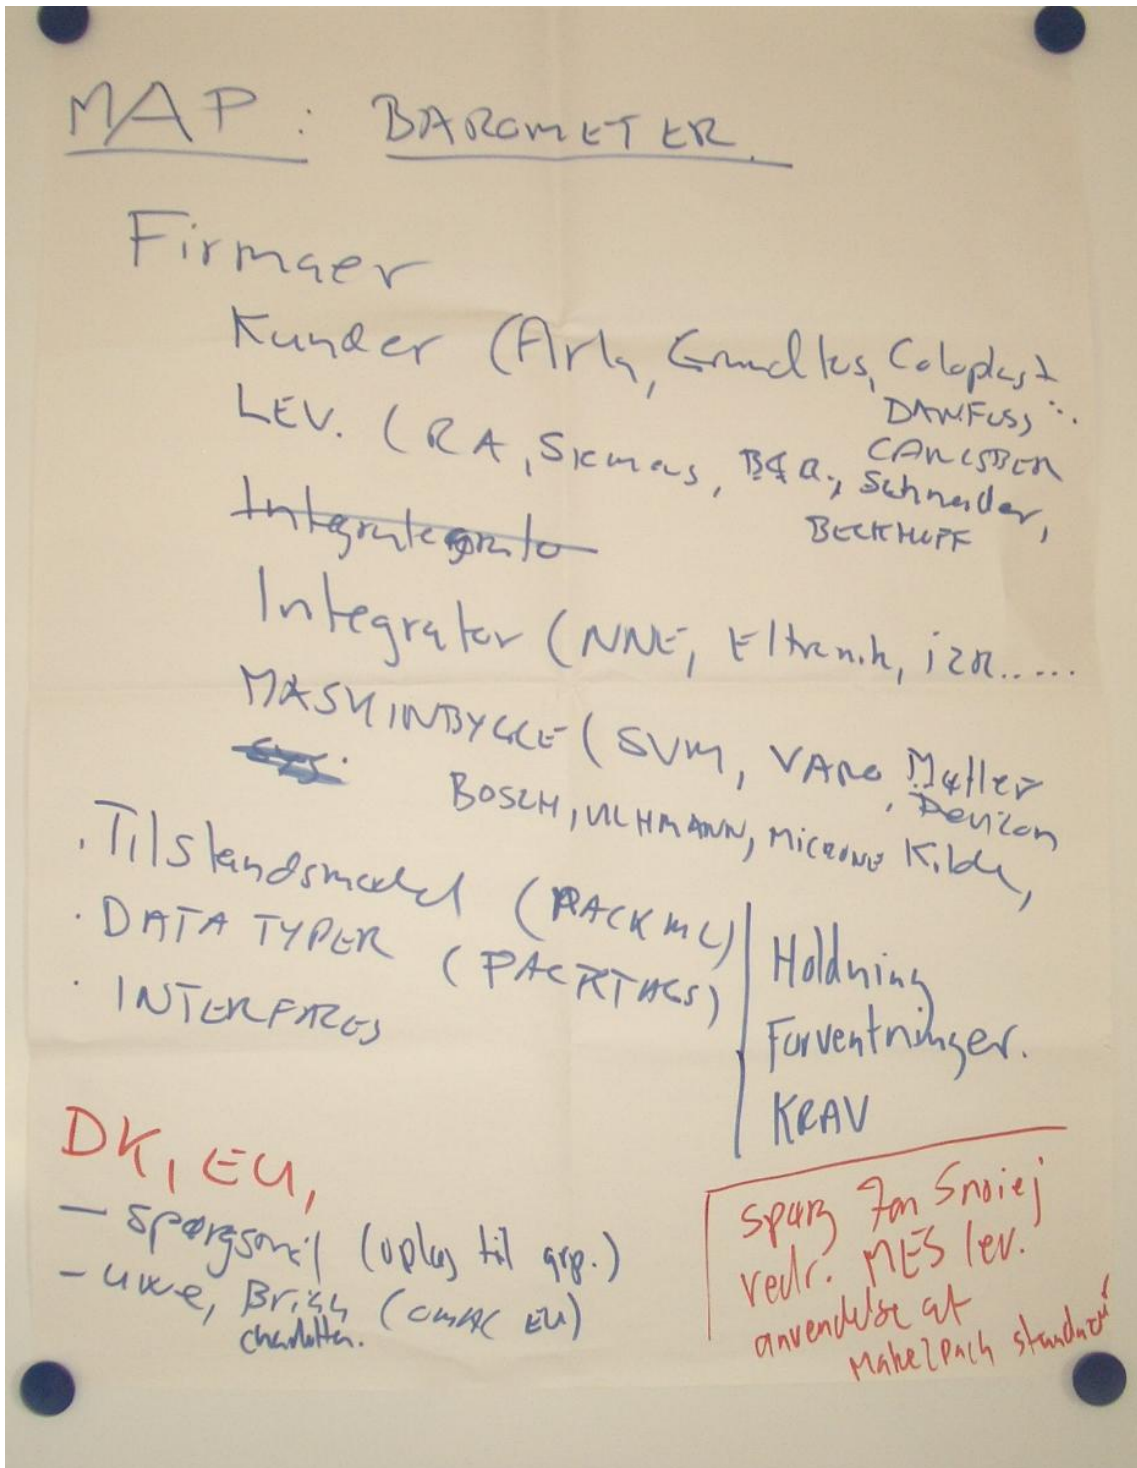 MAP : BAROMETER.
Firmaer
Kunder (Arla, Grundfos, Coloplast
DANFOSS ...
LEV. (RA, Siemens, B&R., Schneider,
CARLSBER
BECKHOFF
Integrator (NNE, Eltronik, i2R.....
MASKINBYGGE (SVM, VARO, Müller
BOSCH, ULHMANN, MICRONE Kilde,
. Tilstandsmodel (PACKML)
. DATA TYPER (PACKTAGS)
. INTERFACES
Holdning
Forventninger.
KRAV
DK, EU,
- spørgsmål (oplæg til grp.)
- Uwe, Brian (OMAC EU)
Charlotten.
Spørg Jan Snoiej
vedr. MES lev.
anvendelse af
Make2Pack standard